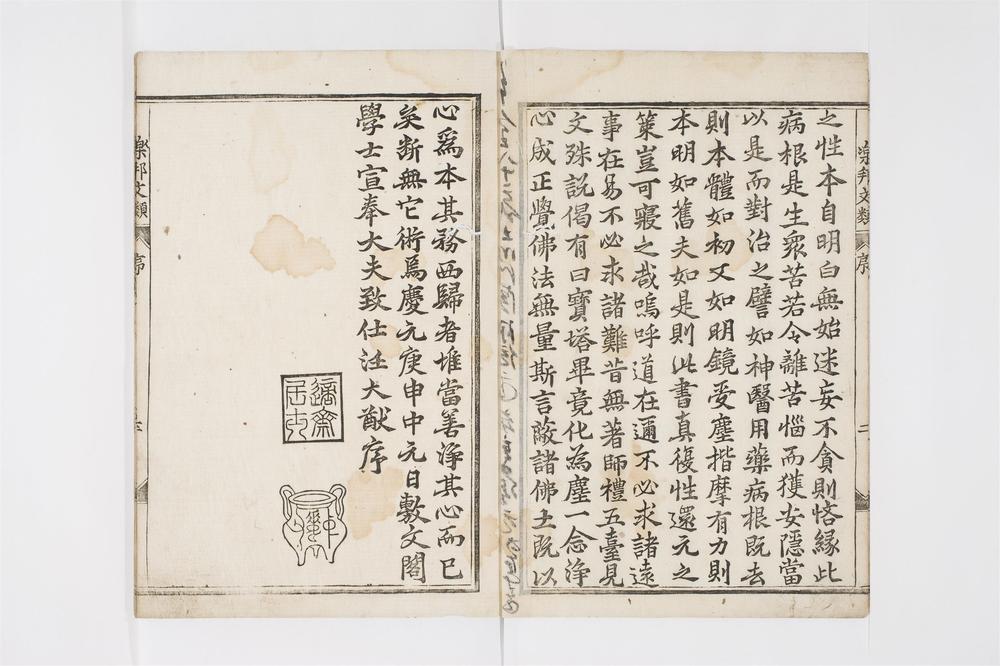 樂邦文類 序 二
之性本自明白無始迷妄不貪則悋緣此
病根是生衆苦若令離苦惱而獲安隱當
以是而對治之譬如神醫用藥病根既去
則本體如初又如明鏡受塵揩摩有力則
本明如舊夫如是則此書真復性還元之
策豈可寢之哉嗚呼道在邇不必求諸遠
事在易不必求諸難昔無著師禮五臺見
文殊說偈有曰寶塔畢竟化為塵一念淨
心成正覺佛法無量斯言蔽諸佛土既以
心爲本其務西歸者唯當善淨其心而已
矣斷無它術焉慶元庚申中元日敷文閣
學士宣奉大夫致仕汪大猷序
適齋
居士
樂邦文類 序